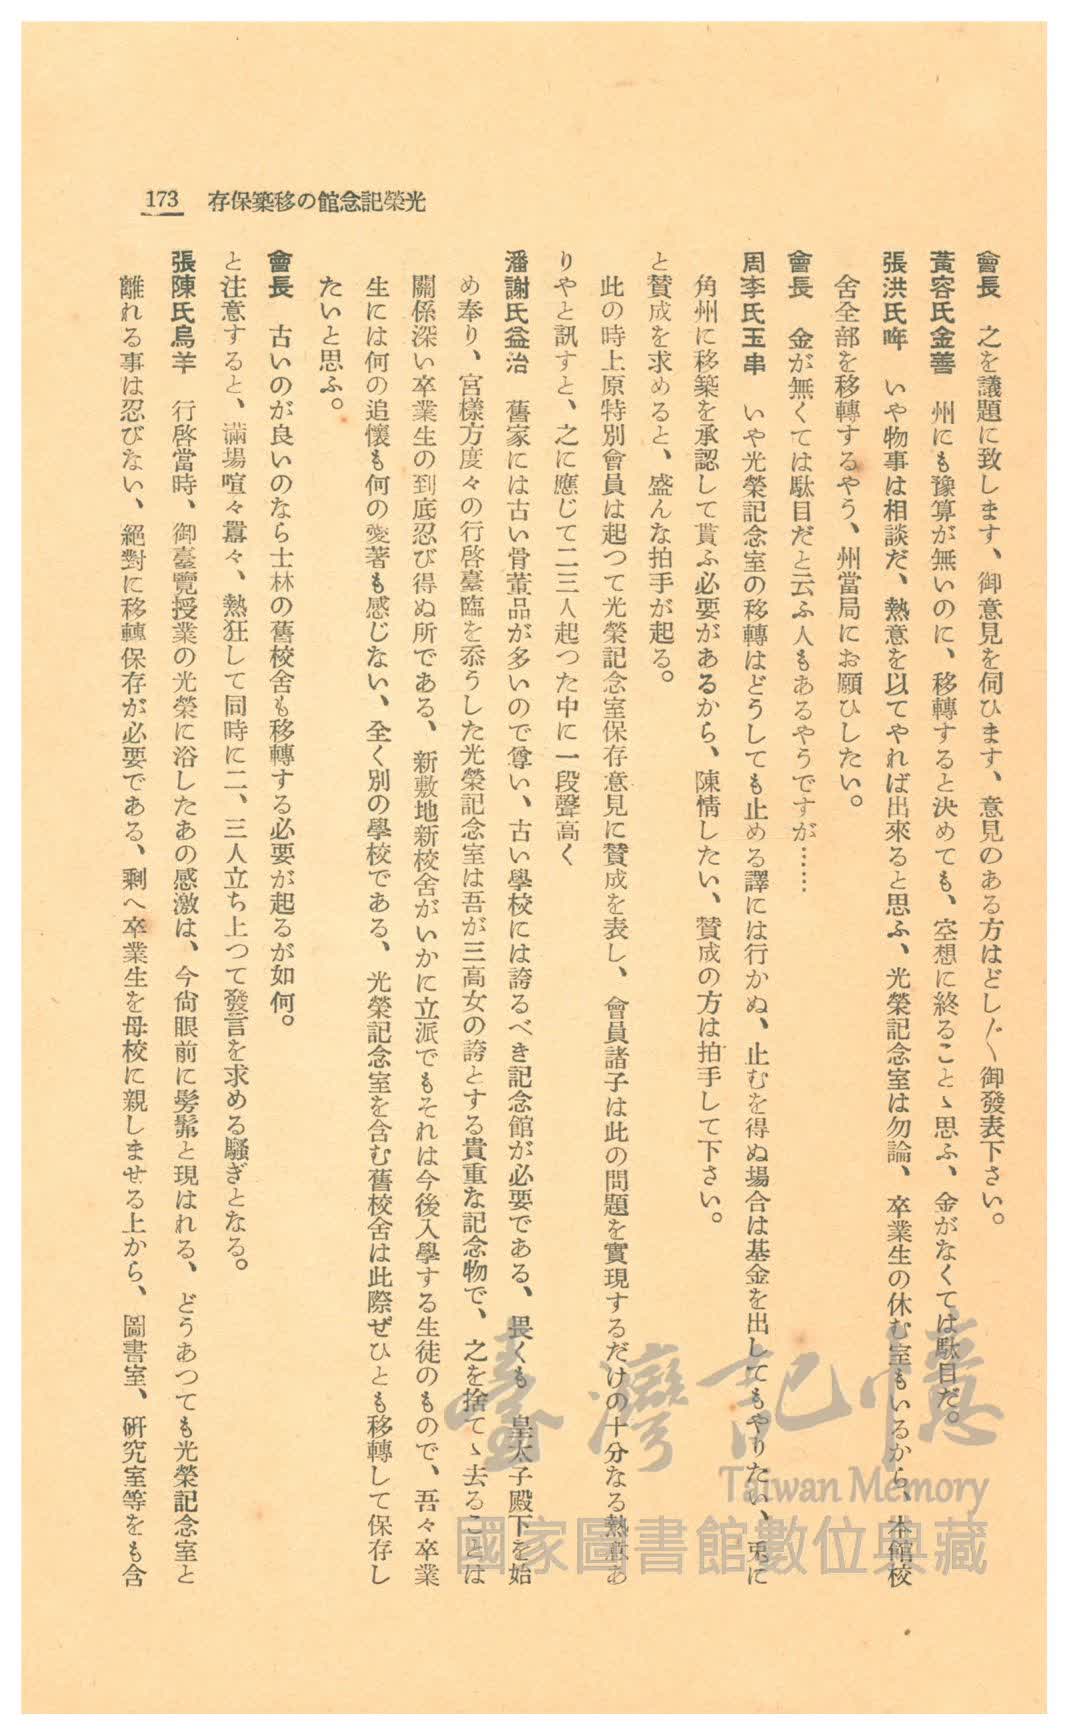 173 存保築移の館念記榮光
會長　之を議題に致します、御意見を伺ひます、意見のある方はどし〲御發表下さい。
黃容氏金善　州にも豫算が無いのに、移轉すると決めても、空想に終ることゝ思ふ、金がなくては駄目だ。
張洪氏　いや物事は相談だ、熱意を以てやれば出來ると思ふ、光榮記念室は勿論、卒業生の休む室もいるから、本館校
舍全部を移轉するやう、州當局にお願ひしたい。
會長　金が無くては駄目だと云ふ人もあるやうですが……
周李氏玉串　いや光榮記念室の移轉はどうしても止める譯には行かぬ、止むを得ぬ場合は基金を出してもやりたい、兎に
角州に移築を承認して貰ふ必要があるから、陳情したい、賛成の方は拍手して下さい。
と賛成を求めると、盛んな拍手が起る。
此の時上原特別會員は起つて光榮記念室保存意見に賛成を表し、會員諸子は此の問題を實現するだけの十分なる熱意あ
りやと訊すと、之に應じて二三人起つた中に一段聲高く
潘謝氏益治　舊家には古い骨董品が多いので尊い、古い學校には誇るべき記念館が必要である、畏くも　皇太子殿下を始
め奉り、宮樣方度々の行啓臺臨を忝うした光榮記念室は吾が三高女の誇とする貴重な記念物で、之を捨てゝ去ることは
關係深い卒業生の到底忍び得ぬ所である、新敷地新校舍がいかに立派でもそれは今後入學する生徒のもので、吾々卒業
生には何の追懷も何の愛著も感じない、全く別の學校である、光榮記念室を含む舊校舍は此際ぜひとも移轉して保存し
たいと思ふ。
會長　古いのが良いのなら士林の舊校舍も移轉する必要が起るが如何。
と注意すると、滿場喧々囂々、熱狂して同時に二、三人立ち上つて發言を求める騷ぎとなる。
張陳氏烏羊　行啓當時、御臺覽授業の光榮に浴したあの感激は、今尙眼前に髣髴と現はれる、どうあつても光榮記念室と
離れる事は忍びない、絕對に移轉保存が必要である、剩へ卒業生を母校に親しませる上から、圖書室、硏究室等をも含
臺灣記憶
Taiwan Memory
國家圖書館數位典藏